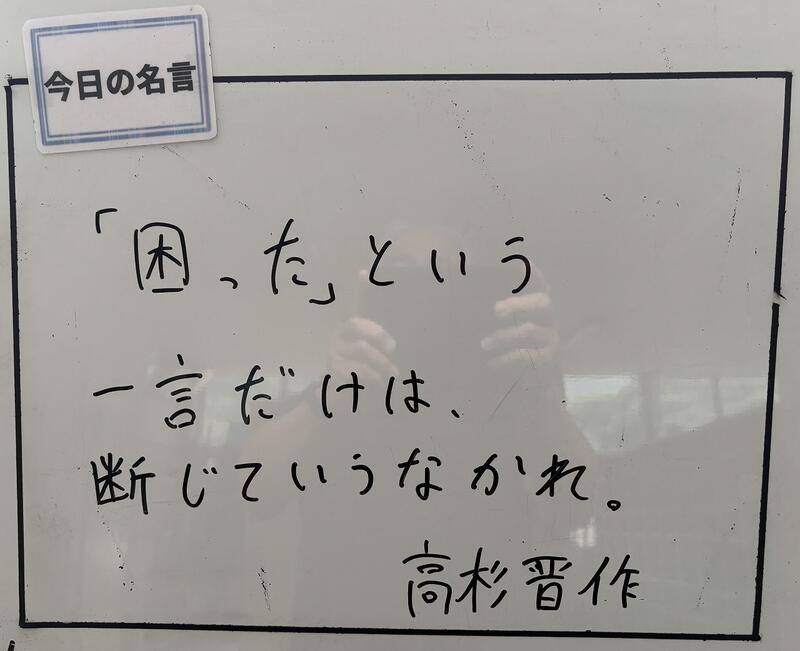 今日の名言
「困った」という
一言だけは、
断じていうなかれ。
高杉晋作